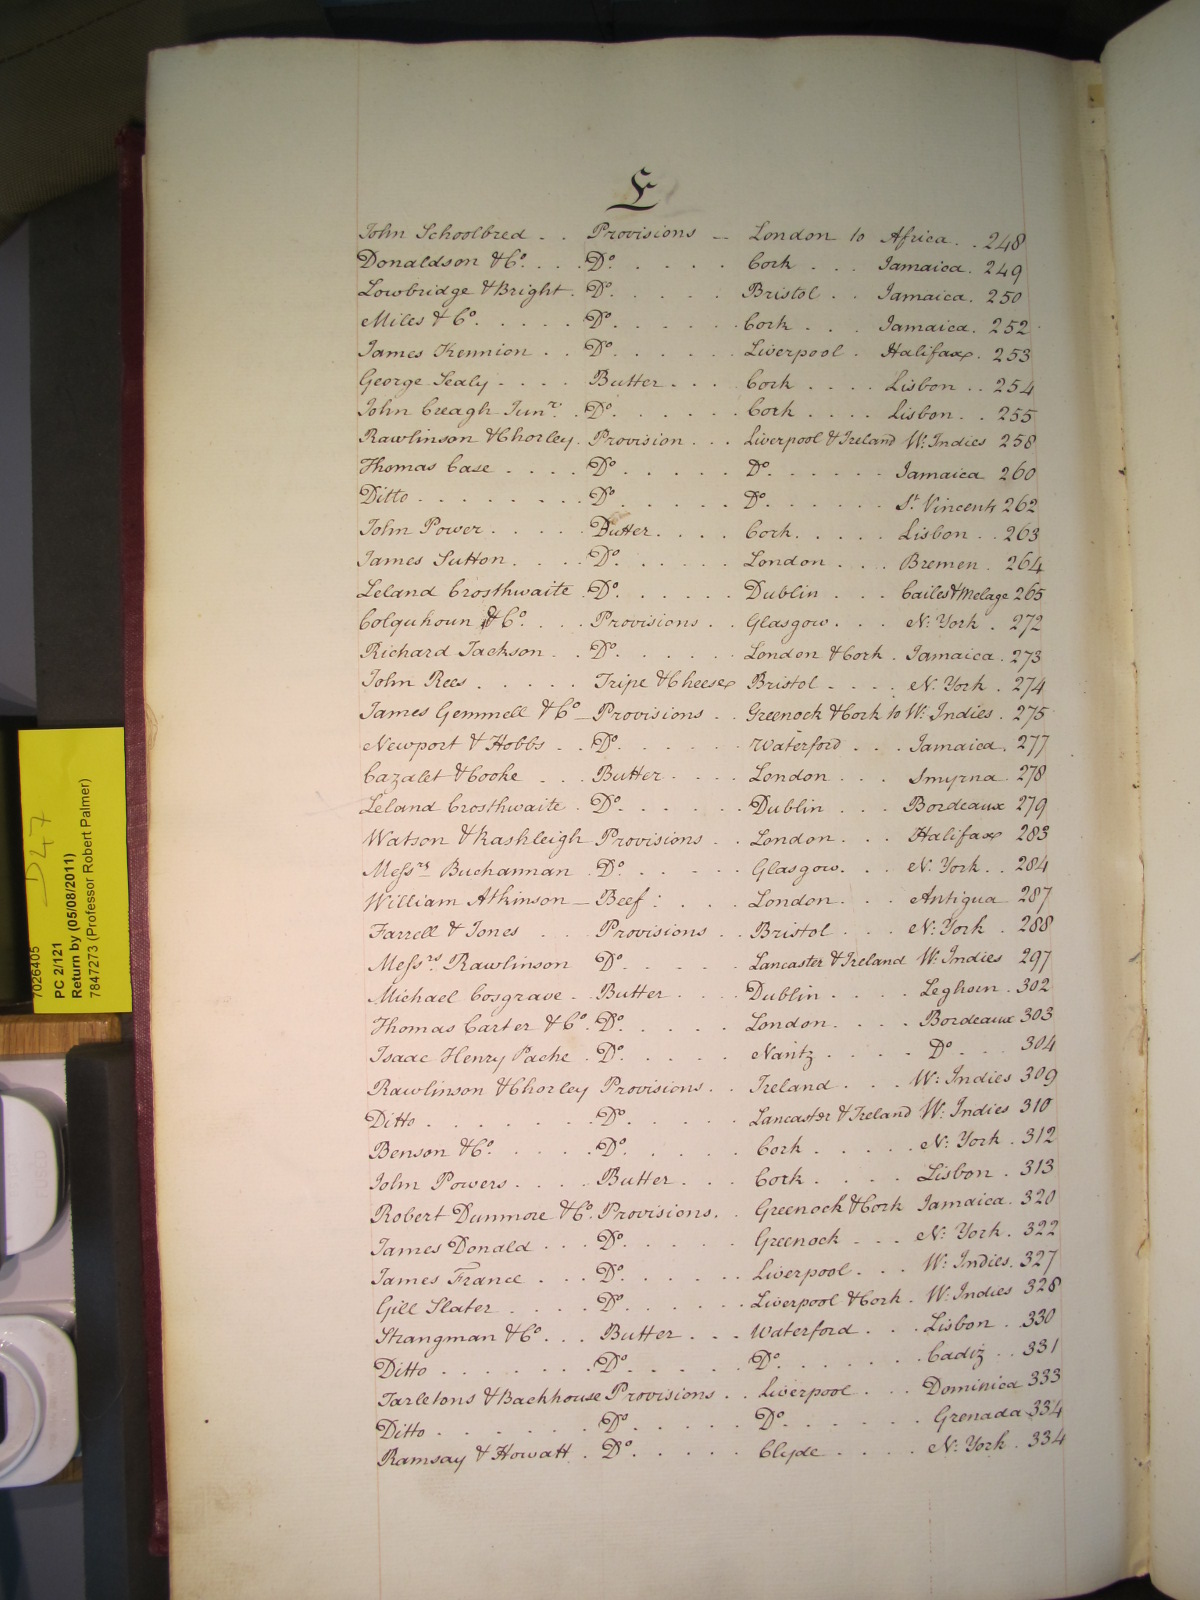 L
John Schoolbred . . Provisions — London to Africa . . 248
Donaldson & Co. . . . Do. . . . . Cork . . . Jamaica . 249
Lowbridge & Bright . Do. . . . . Bristol . . Jamaica . 250
Miles & Co. . . . . Do. . . . . Cork . . . Jamaica . 252
James Kennion . . Do. . . . . Liverpool . Halifax . 253
George Sealy . . . . Butter . . . Cork . . . . Lisbon . . 254
John Creagh Junr. . Do. . . . . Cork . . . . Lisbon . . 255
Rawlinson & Chorley . Provision . . . Liverpool & Ireland W: Indies 258
Thomas Case . . . . Do . . . . . Do. . . . . . Jamaica 260
Ditto . . . . . . . . Do . . . . . Do. . . . . . St. Vincents 262
John Power . . . . . Butter . . . . Cork . . . . . Lisbon . . 263
James Sutton . . . . Do. . . . . . London . . . Bremen . 264
Leland Crosthwaite . Do. . . . . . Dublin . . . Cailes & Melage 265
Colquhoun & Co. . . . Provisions . . Glasgow . . . N: York . 272
Richard Jackson . . Do. . . . . London & Cork . Jamaica . 273
John Rees . . . . . Tripe & Cheese Bristol . . . . N. York . 274
James Gemmell & Co — Provisions . . Greenock & Cork to W: Indies . 275
Newport & Hobbs . . Do. . . . . Waterford . . . Jamaica . 277
Cazalet & Cooke . . . Butter . . . . London . . . Smyrna . 278
Leland Crosthwaite . Do. . . . . . Dublin . . . Bordeaux 279
Watson & Rashleigh Provisions . . London . . . Halifax 283
Messrs Buchannan . Do . . . . . Glasgow . . . N: York . . 284
William Atkinson — Beef : . . . London . . . Antigua 287
Farrell & Jones . . . Provisions . . Bristol . . . N: York . 288
Messrs. Rawlinson Do. . . . . Lancaster & Ireland W: Indies 297
Michael Cosgrave . Butter . . . Dublin . . . . Leghorn . 302
Thomas Carter & Co . Do. . . . . London . . . . Bordeaux 303
Isaac Henry Pache . Do. . . . . Nantz . . . . Do . . . 304
Rawlinson & Chorley Provisions . . Ireland . . . W: Indies 309
Ditto . . . . . . . Do. . . . . Lancaster & Ireland W: Indies 310
Benson & Co. . . . . Do. . . . . Cork . . . . . N: York . 312
John Powers . . . . Butter . . . Cork . . . . Lisbon . 313
Robert Dunmore & Co. Provisions . . Greenock & Cork Jamaica . 320
James Donald . . . Do. . . . . Greenock . . . N: York . 322
James France . . . Do. . . . . Liverpool . . . W: Indies . 327
Gill Slater . . . . Do. . . . . Liverpool & Cork . W: Indies 328
Strangman & Co . . . Butter . . . Waterford . . . Lisbon . 330
Ditto . . . . . . . Do . . . . . Do . . . . . . Cadiz . . 331
Tarletons & Backhouse Provisions . . Liverpool . . . Dominica 333
Ditto . . . . . . . Do . . . . . Do. . . . . . Grenada 334
Ramsay & Howatt . Do . . . . . Clyde . . . . N: York . 334
D47
7026405
PC 2/121
Return by (05/08/2011)
7847273 (Professor Robert Palmer)